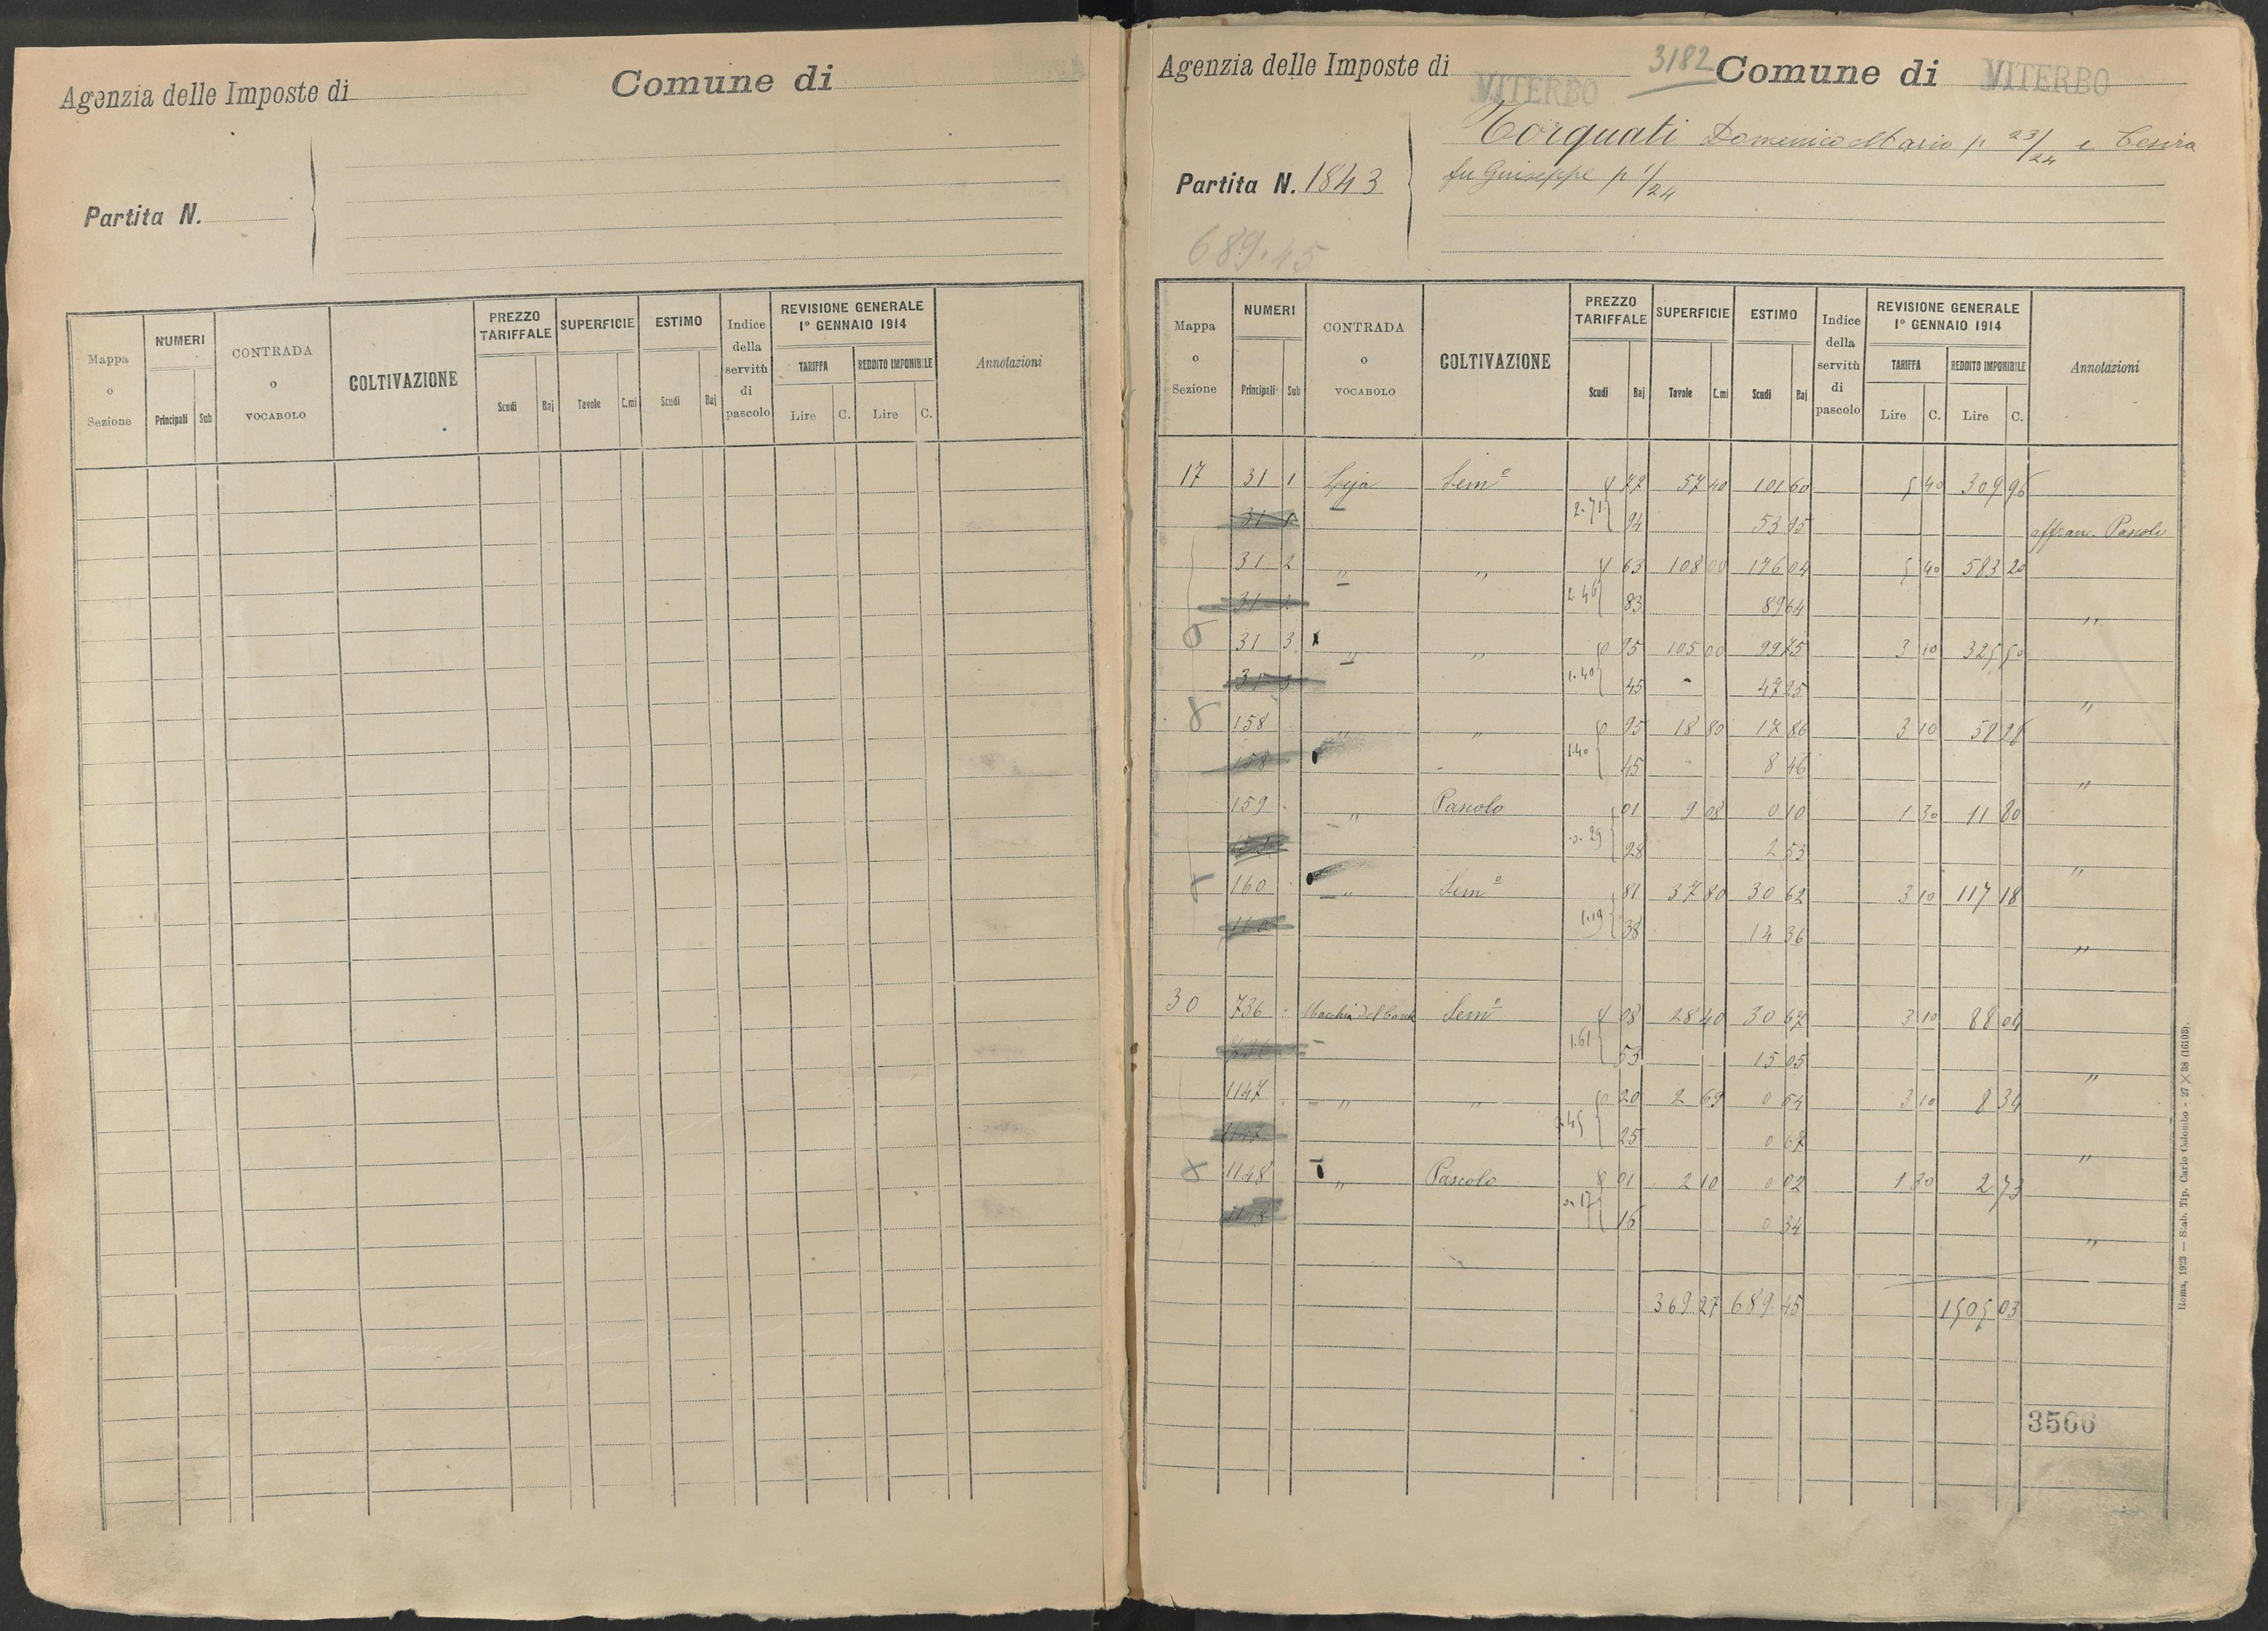 Agenzia delle Imposte di
Comune di
Partita N.
Mappa o Sezione
NUMERI
Principali Sub
CONTRADA o VOCABOLO
COLTIVAZIONE
PREZZO TARIFFALE
Scudi Baj
SUPERFICIE
Tavole C.mi
ESTIMO
Scudi Baj
Indice della servitù di pascolo
REVISIONE GENERALE
1° GENNAIO 1914
TARIFFA REDDITO IMPONIBILE
Lire C. Lire C.
Annotazioni
Agenzia delle Imposte di VITERBO
3182
Comune di VITERBO
Torquati Domenico Mario p 23/24 e Cesira
fu Giuseppe p 1/24
Partita N. 1843
689.45
Mappa o Sezione
NUMERI
Principali Sub
CONTRADA o VOCABOLO
COLTIVAZIONE
PREZZO TARIFFALE
Scudi Baj
SUPERFICIE
Tavole C.mi
ESTIMO
Scudi Baj
Indice della servitù di pascolo
REVISIONE GENERALE
1° GENNAIO 1914
TARIFFA REDDITO IMPONIBILE
Lire C. Lire C.
Annotazioni
17 31 1 Semo 57 40 101 60 5 40 309 96
31 1 2.71 94 53 95 affranc. Pascolo
31 2 " " 63 108 00 176 04 5 40 583 20
2.46 83 89 64 "
31 3 " " 95 105 00 99 75 3 10 325 50
31 3 1.40 45 47 25 "
158 " " 95 18 80 17 86 3 10 58 28
158 1.40 45 8 46 "
159 " Pascolo 01 9 08 0 10 1 30 11 80
0.29 28 2 53 "
160 " Semo 81 37 80 30 62 3 10 117 18
160 1.19 38 14 36 "
30 736 Macchia del Conte Semo 08 28 40 30 67 3 10 88 04
1.61 53 15 05 "
1147 " " 0 20 2 69 0 54 3 10 8 34
1147 0.45 25 0 67 "
1148 " Pascolo 0 01 2 10 0 02 1 30 2 73
0.17 16 0 34 "
369 27 689.45 1505 03
3566
Roma, 1923 — Stab. Tip. Carlo Colombo - 27 × 38 (16103).